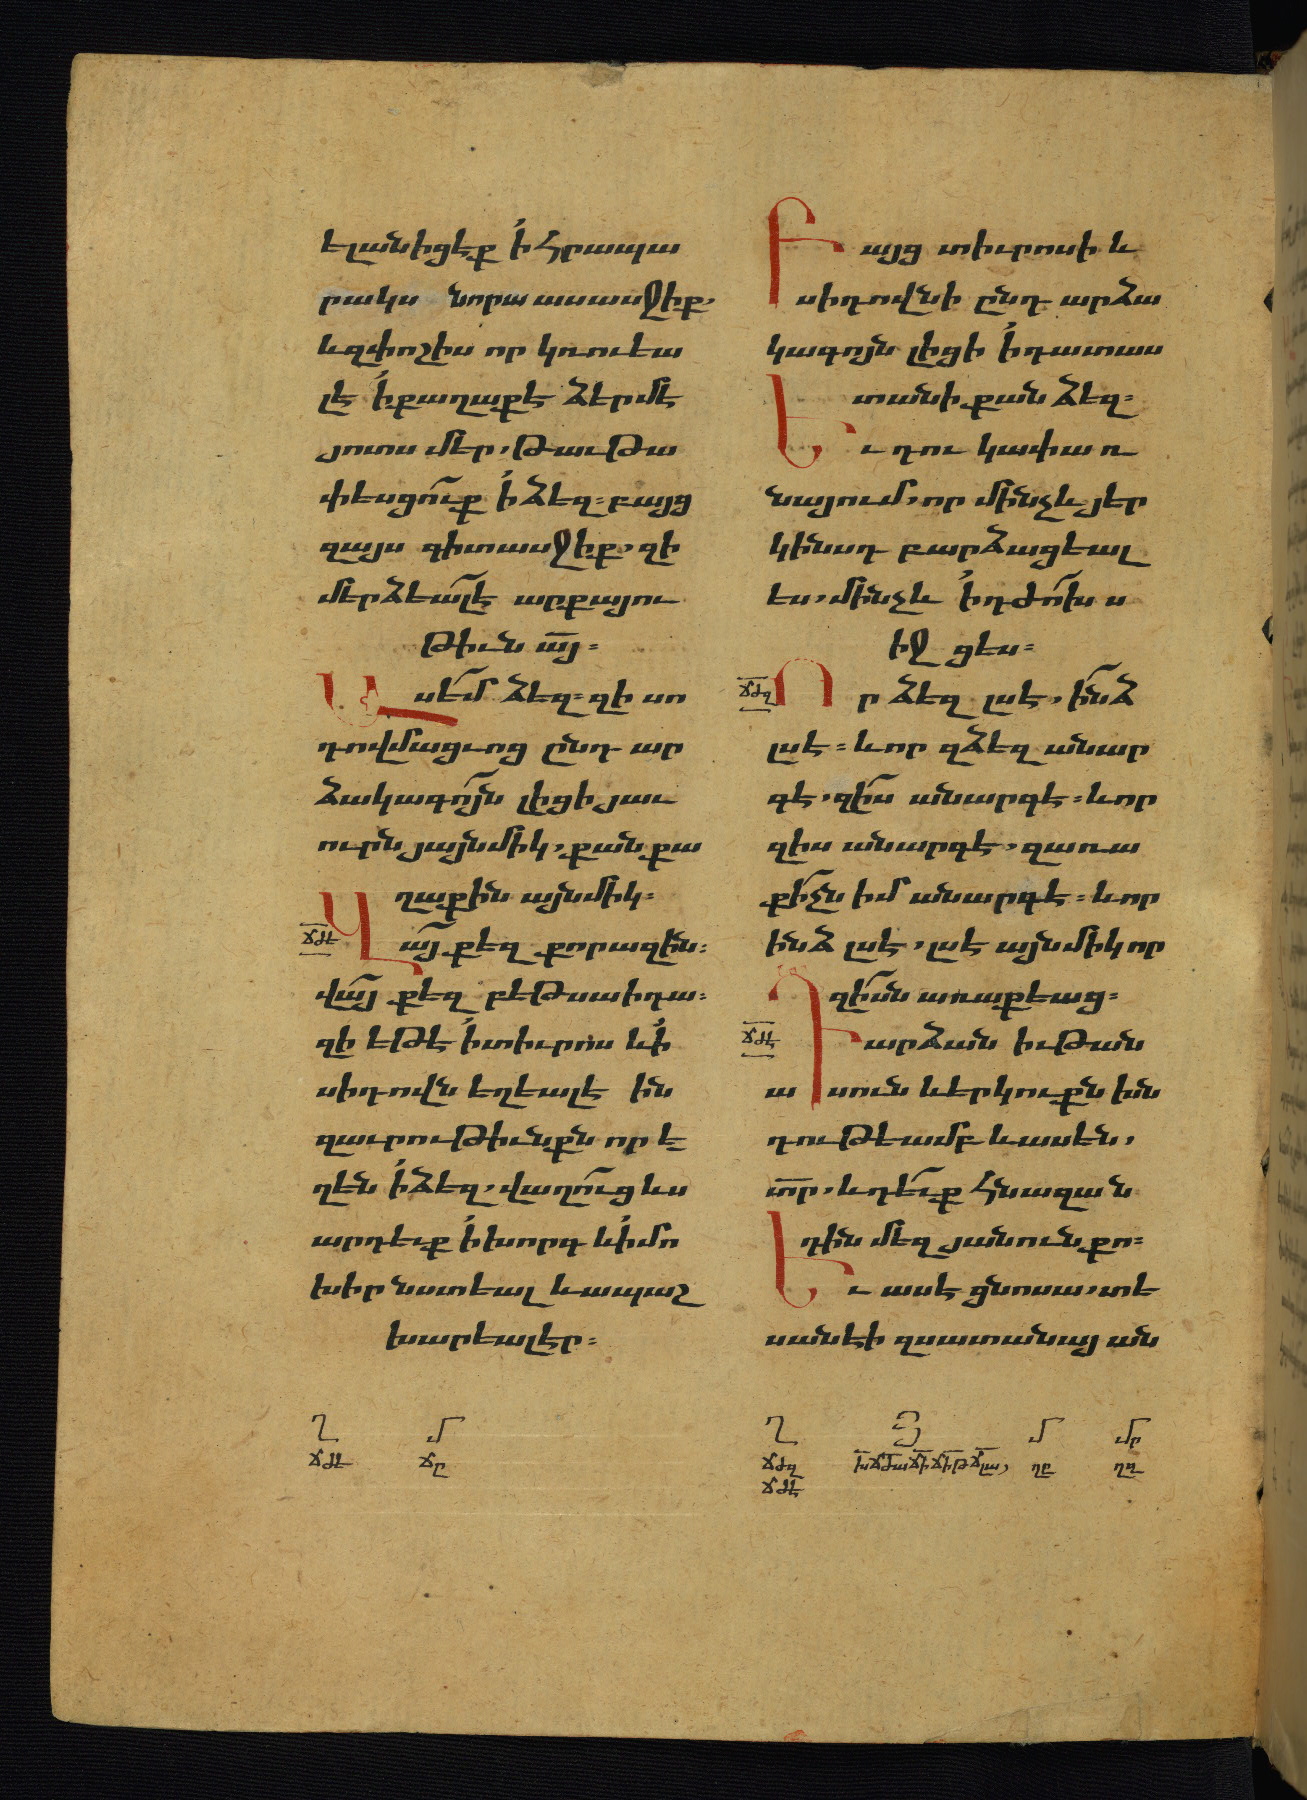 ելանիցէք ի հրապա
րակս նորա ասասջիք,
և զփոշիս որ կռուեա
լէ ի քաղաքէ ձերմէ
յոտս մեր, թաւթա
փեսցուք ի ձեզ. բայց
զայս գիտասջիք, զի
մերձեալէ արքայու
թիւն ա՟յ.
Ասեմ ձեզ. զի սո
դովմացւոց ընդ ար
ձակագոյն լիցի յաւ
ուրն յայնմիկ, քան քա
ղաքին այնմիկ.
ՃԺԵ Վայ քեզ քորազին.
վայ քեզ բեթսաիդա.
զի եթէ ի տիւրոս և ի
սիդովն եղեալէին
զաւրութիւնքն որ ե
ղեն ի ձեզ, վաղուց ևս
արդեւք ի խորգ և ի մո
խիր նստեալ և ապաշ
խարեալէր.
Բայց տիւրոսի և
սիդովնի ընդ արձա
կագոյն լիցի ի դատաս
տանի քան ձեզ.
Եւ դու կափառ
նայում, որ մինչև յեր
կինսդ բարձացեալ
ես, մինչև ի դժոխս
իջցես.
ՃԺԶ Որ ձեզ լսէ, ինձ
լսէ. և որ զձեզ անար
գէ, զիս անարգէ. և որ
զիս անարգէ, զառա
քիչն իմ անարգէ. և որ
ինձ լսէ, լսէ այնմիկ որ
զիսն առաքեաց.
ՃԺԷ Դարձան իւթան
ասունև երկուքն խն
դութեամբ և ասեն,
տ՟ր, և դեւք հնազան
դին մեզ յանուն քո.
Եւ ասէ ցնոսա, տե
սանէի զսատանայ ան
Ղ Մ
ՃԺԵ ՃԸ
Ղ Յ Մ ՄՐ
ՃԺԶ ԽՃԺԱՃԻՃԻԹՃԼԱ, ՂԸ ՂԴ
ՃԺԷ